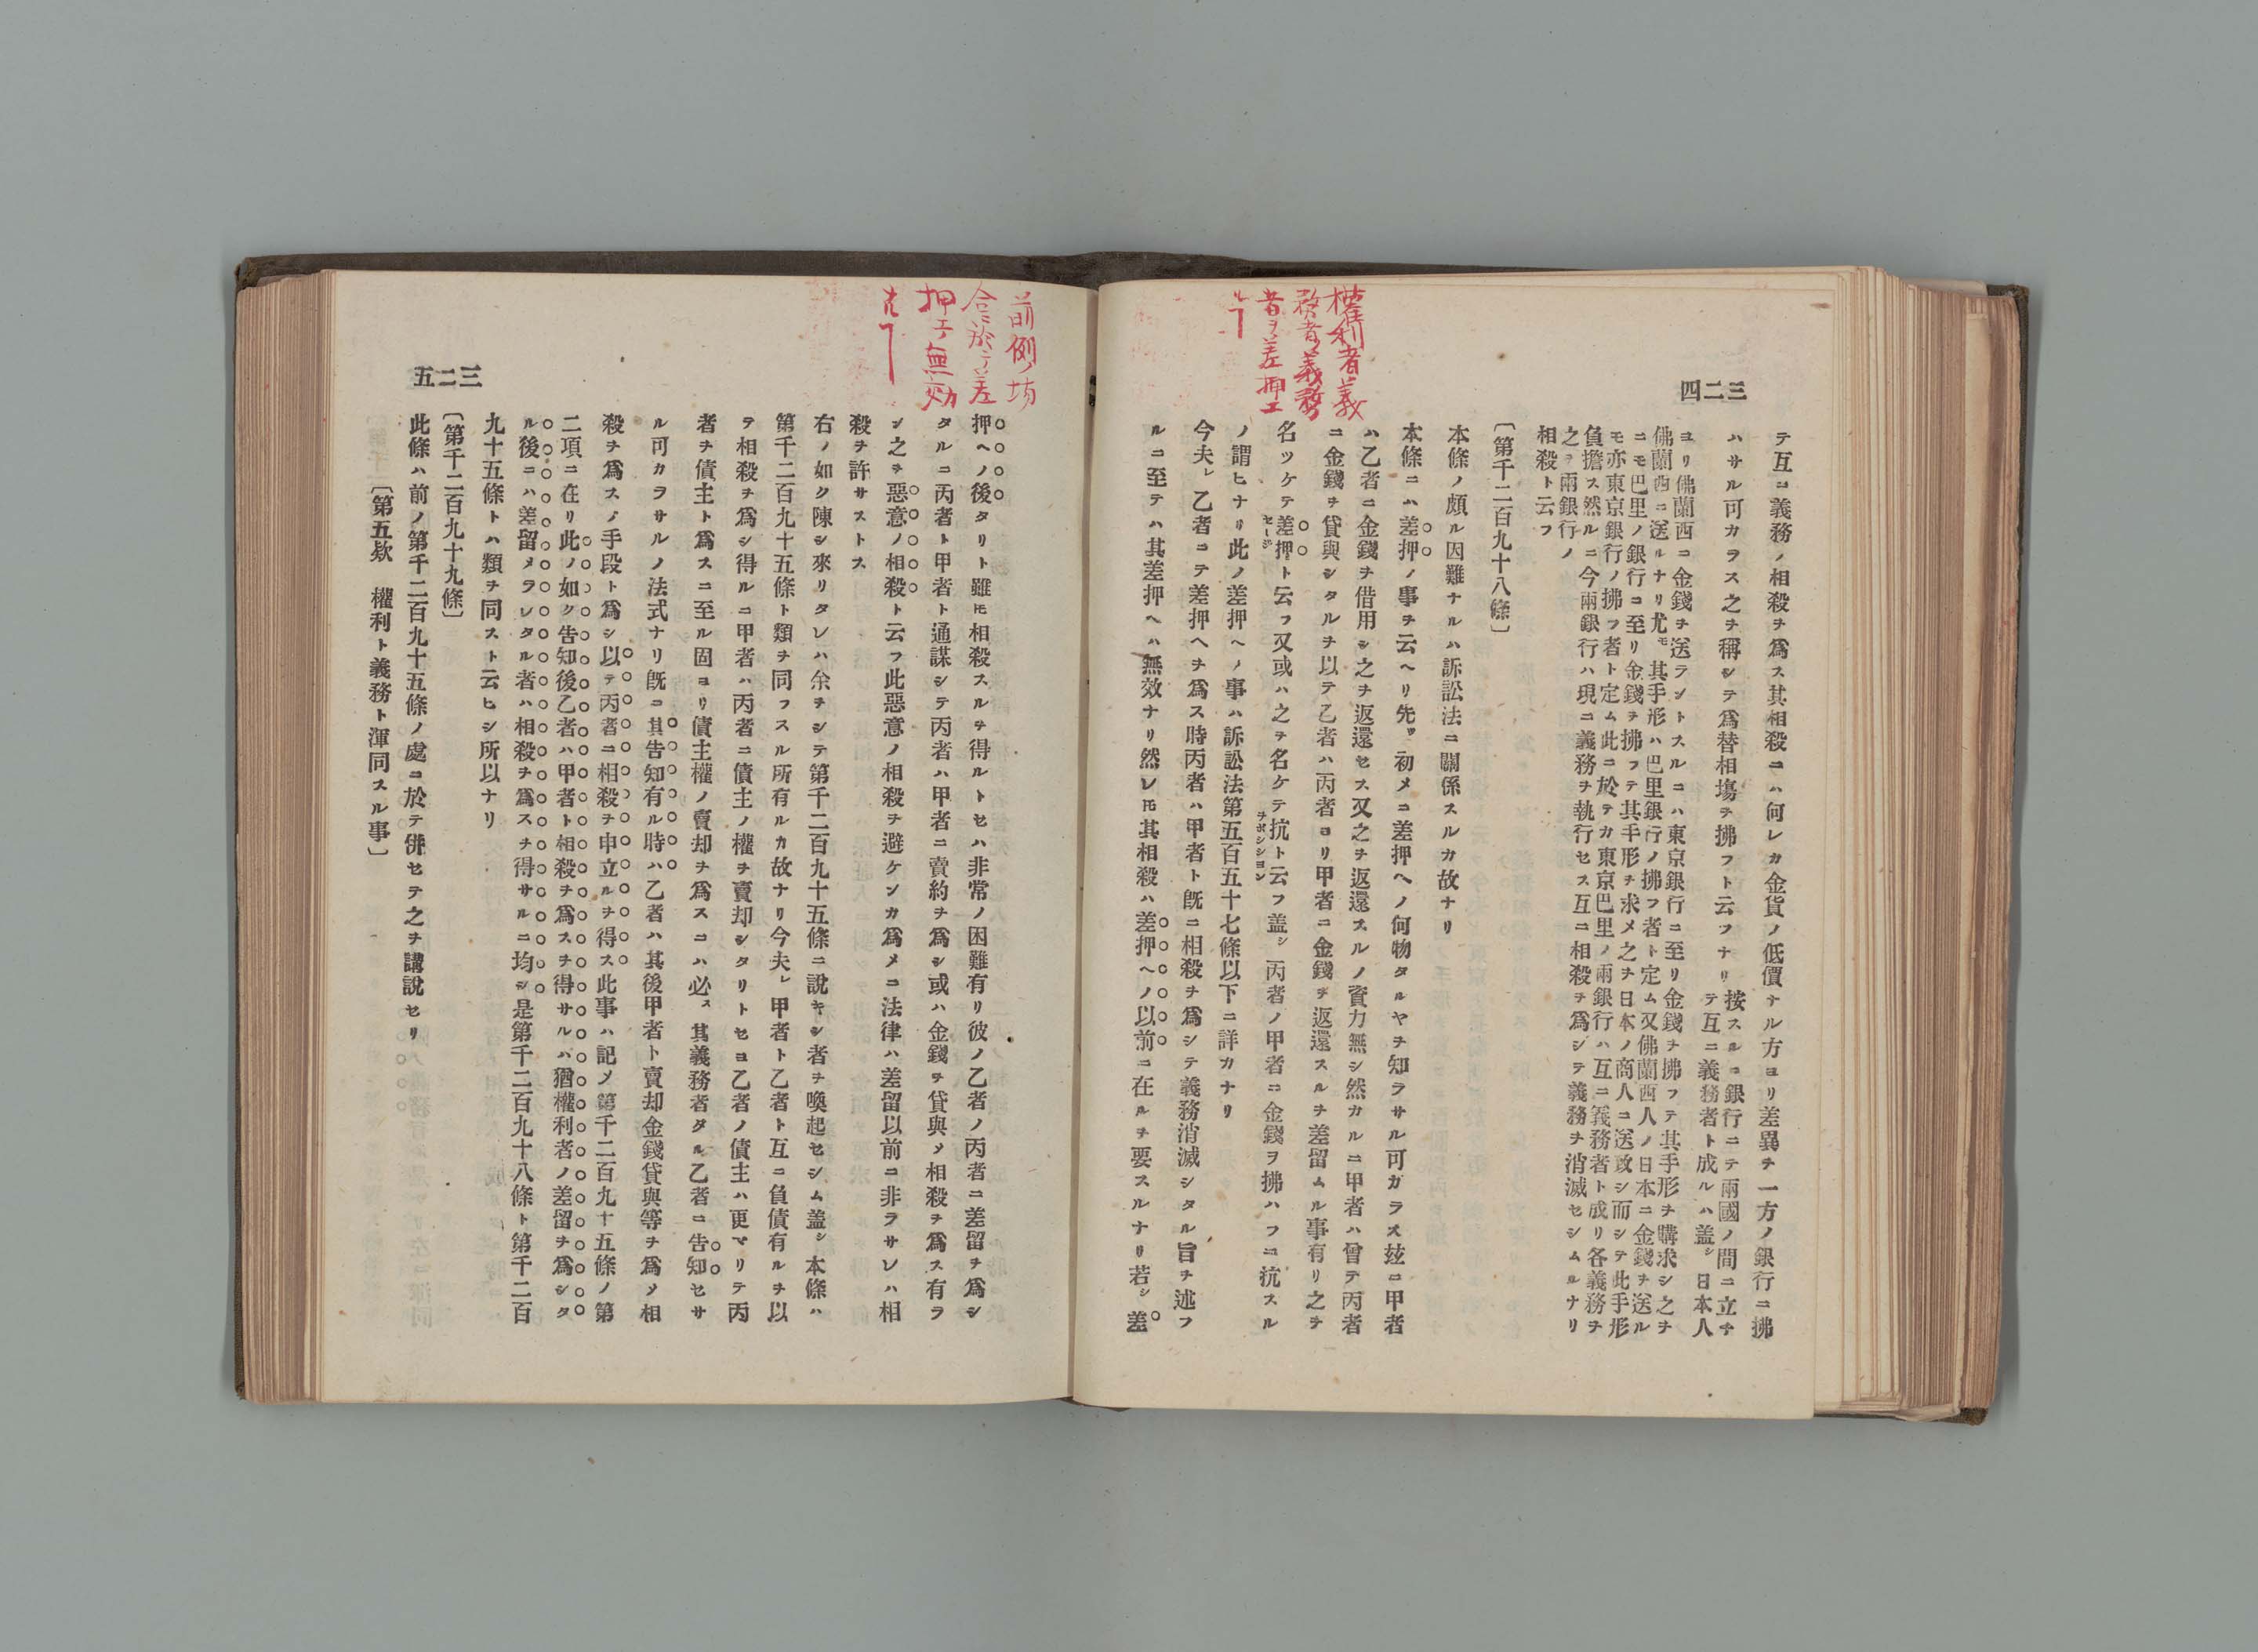 四二三
權利者義
務者ノ義務
者ヲ差押エ
テ互ニ義務ノ相殺ヲ爲ス其相殺ニハ何レカ金貨ノ低價ナル方ヨリ差異ヲ一方ノ銀行ニ拂
ハサル可カラス之ヲ稱シテ爲替相塲ヲ拂フト云フナリ
按スルニ銀行ニテ兩國ノ間ニ立チ
テ互ニ義務者ト成ルハ盖シ日本人
ヨリ佛蘭西ニ金錢ヲ送ラントスルニハ東京銀行ニ至リ金錢ヲ拂フテ其手形ヲ購求シ之ヲ
佛蘭西ニ送ルナリ尤モ其手形ハ巴里銀行ノ拂フ者ト定ム又佛蘭西人ノ日本ニ金錢ヲ送ル
ニモ巴里ノ銀行ニ至リ金錢ヲ拂フテ其手形ヲ求メ之ヲ日本ノ商人ニ送致シ而シテ此手形
モ亦東京銀行ノ拂フ者ト定ム此ニ於テカ東京巴里ノ兩銀行ハ互ニ義務者ト成リ各義務ヲ
負擔ス然ルニ今兩銀行ハ現ニ義務ヲ執行セス互ニ相殺ヲ爲シテ義務ヲ消滅セシムルナリ
之ヲ兩銀行ノ
相殺ト云フ
〔第千二百九十八條〕
本條ノ頗ル困難ナルハ訴訟法ニ關係スルカ故ナリ
本條ニハ差押ノ事ヲ云ヘリ先ツ初メニ差押ヘノ何物タルヤヲ知ラサル可ガラス玆ニ甲者
ハ乙者ニ金錢ヲ借用シ之ヲ返還セス又之ヲ返還スルノ資力無シ然カルニ甲者ハ曾テ丙者
ニ金錢ヲ貸與シタルヲ以テ乙者ハ丙者ヨリ甲者ニ金錢ヲ返還スルヲ差留ムル事有リ之ヲ
名ツケテ差押ト云フ又或ハ之ヲ名ケテ抗ト云フ盖シ丙者ノ甲者ニ金錢ヲ拂ハフニ抗スル
セージ
ヲポシシヨン
ノ謂ヒナリ此ノ差押ヘノ事ハ訴訟法第五百五十七條以下ニ詳カナリ
今夫レ乙者ニテ差押ヘヲ爲ス時丙者ハ甲者ト既ニ相殺ヲ爲シテ義務消滅シタル旨ヲ述フ
ルニ至テハ其差押ヘハ無效ナリ然レ𪜈其相殺ハ差押ヘノ以前ニ在ルヲ要スルナリ若シ差
五二三
前例ノ塲
合ニ於テ差
押エ無効
押ヘノ後タリト雖𪜈相殺スルヲ得ルトセハ非常ノ困難有リ彼ノ乙者ノ丙者ニ差留ヲ爲シ
タルニ丙者ト甲者ト通謀シテ丙者ハ甲者ニ賣約ヲ爲シ或ハ金錢ヲ貸與シ相殺ヲ爲ス有ラ
ン之ヲ惡意ノ相殺ト云フ此惡意ノ相殺ヲ避ケンカ爲メニ法律ハ差留以前ニ非ラサレハ相
殺ヲ許サストス
右ノ如ク陳シ來リタレハ余ヲシテ第千二百九十五條ニ說キシ者ヲ喚起セシム盖シ本條ハ
第千二百九十五條ト類ヲ同フスル所有ルカ故ナリ今夫レ甲者ト乙者ト互ニ負債有ルヲ以
テ相殺ヲ爲シ得ルニ甲者ハ丙者ニ債主ノ權ヲ賣却シタリトセヨ乙者ノ債主ハ更マリテ丙
者ヲ債主ト爲スニ至ル固ヨリ債主權ノ賣却ヲ爲スニハ必ス其義務者タル乙者ニ告知セサ
ル可カラサルノ法式ナリ既ニ其告知有ル時ハ乙者ハ其後甲者ト賣却金錢貸與等ヲ爲シ相
殺ヲ爲スノ手段ト爲シ以テ丙者ニ相殺ヲ申立ルヲ得ス此事ハ記シ第千二百九十五條ノ第
二項ニ在リ此ノ如ク告知後乙者ハ甲者ト相殺ヲ爲スヲ得サルハ猶權利者ノ差留ヲ爲シタ
ル後ニハ差留メラレタル者ハ相殺ヲ爲スヲ得サルニ均シ是第千二百九十八條ト第千二百
九十五條トハ類ヲ同スト云ヒシ所以ナリ
〔第千二百九十九條〕
此條ハ前ノ第千二百九十五條ノ處ニ於テ併セテ之ヲ講說セリ
〔第五欵 權利ト義務ト渾同スル事〕